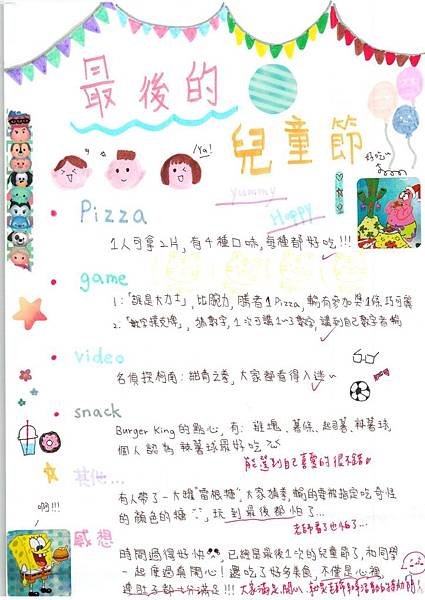 最後的
兒童節
Ya!
好吃~
yummy
Happy
Pizza
1人可拿2片, 有4種口味, 每種都好吃!!!
game
1:「誰是大力士」, 比腕力, 勝者1Pizza, 輸有參加獎1條巧可麗
2:「數字撲克牌」, 猜數字, 1次可講1~3數字, 講到自己數字者輸
video
名偵探柯南: 紺青之拳, 大家都看得入迷~
snack
Burger King的點心, 有: 雞塊、薯條、起司薯、
個人認為 薯球最好吃
能選到自己喜愛的很不錯
其他...
啊!!!
有人帶了一大罐"雷根糖", 大家猜拳, 輸的要被指定吃奇怪
的顏色的糖, 玩到最後都怕了...
老師看了也怕了...
感想
時間過得好快, 已經是最後1次的兒童節了, 和同學
一起度過真開心! 還吃了好多美食, 不僅是心裡
連肚子都十分滿足!!!